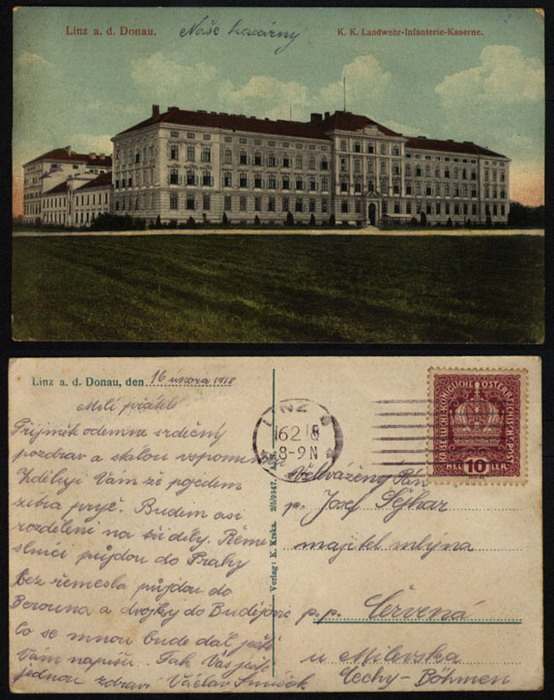 Linz a. d. Donau.
Naše kasárny
K. K. Landwehr-Infanterie-Kaserne.
Linz a. d. Donau, den 16 února 1918
Milí přátelé
Přijměte odemne srdečný
pozdrav a stalou vspomín
Zděluji Vám že pojedem
zebia pryč. Budem asi
rozděleni na tři díly. Řeme
slníci půjdou do Prahy
bez řemesla půjdou do
Berouna a dvojky do Budějovic
co se mnou bude dál ještě
Vám napíši. Tak Vás ješ
jednou zdraví Václav
Verlag: K. Krska.
LINZ
16 2 18
8-9N
KAISERLICHE KÖNIGLICHE ÖSTERREICHISCHE POST
HELLER 10 HELLER
Velevážený Pán
p. Josef Sýkar
majitel mlýna
p.p. Červená
u Milevska
Čechy - Böhmen